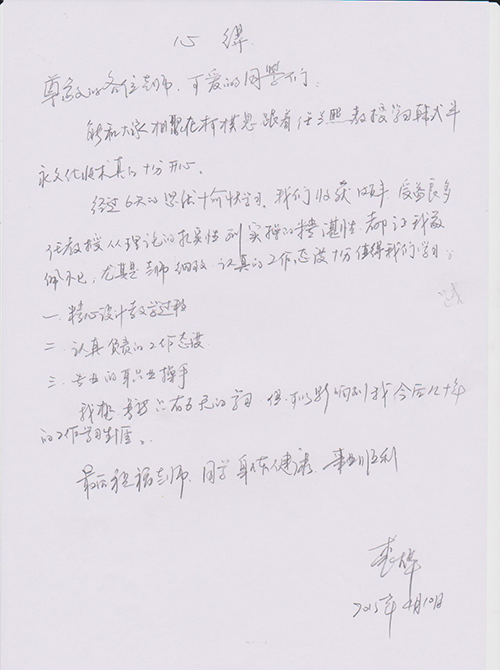 心得
尊敬的各位老师、可爱的同学们:
能和大家相聚在柯模思跟着任兰熙教授学习韩式半
永久化妆术真的十分开心。
经过6天的紧张愉快学习,我们收获颇丰,受益良多
任教授从理论的扎实性到实操的精湛性都让我敬
佩不已,尤其是老师细致、认真的工作态度十分值得我们学习:
一、精心设计教学过程
二、认真负责的工作态度
三、专业的职业操手
我想,虽然只有6天的学习,但可以影响到我今后几十年
的工作学习生涯。
最后祝福老师、同学身体健康、事业顺利
2015年4月10日